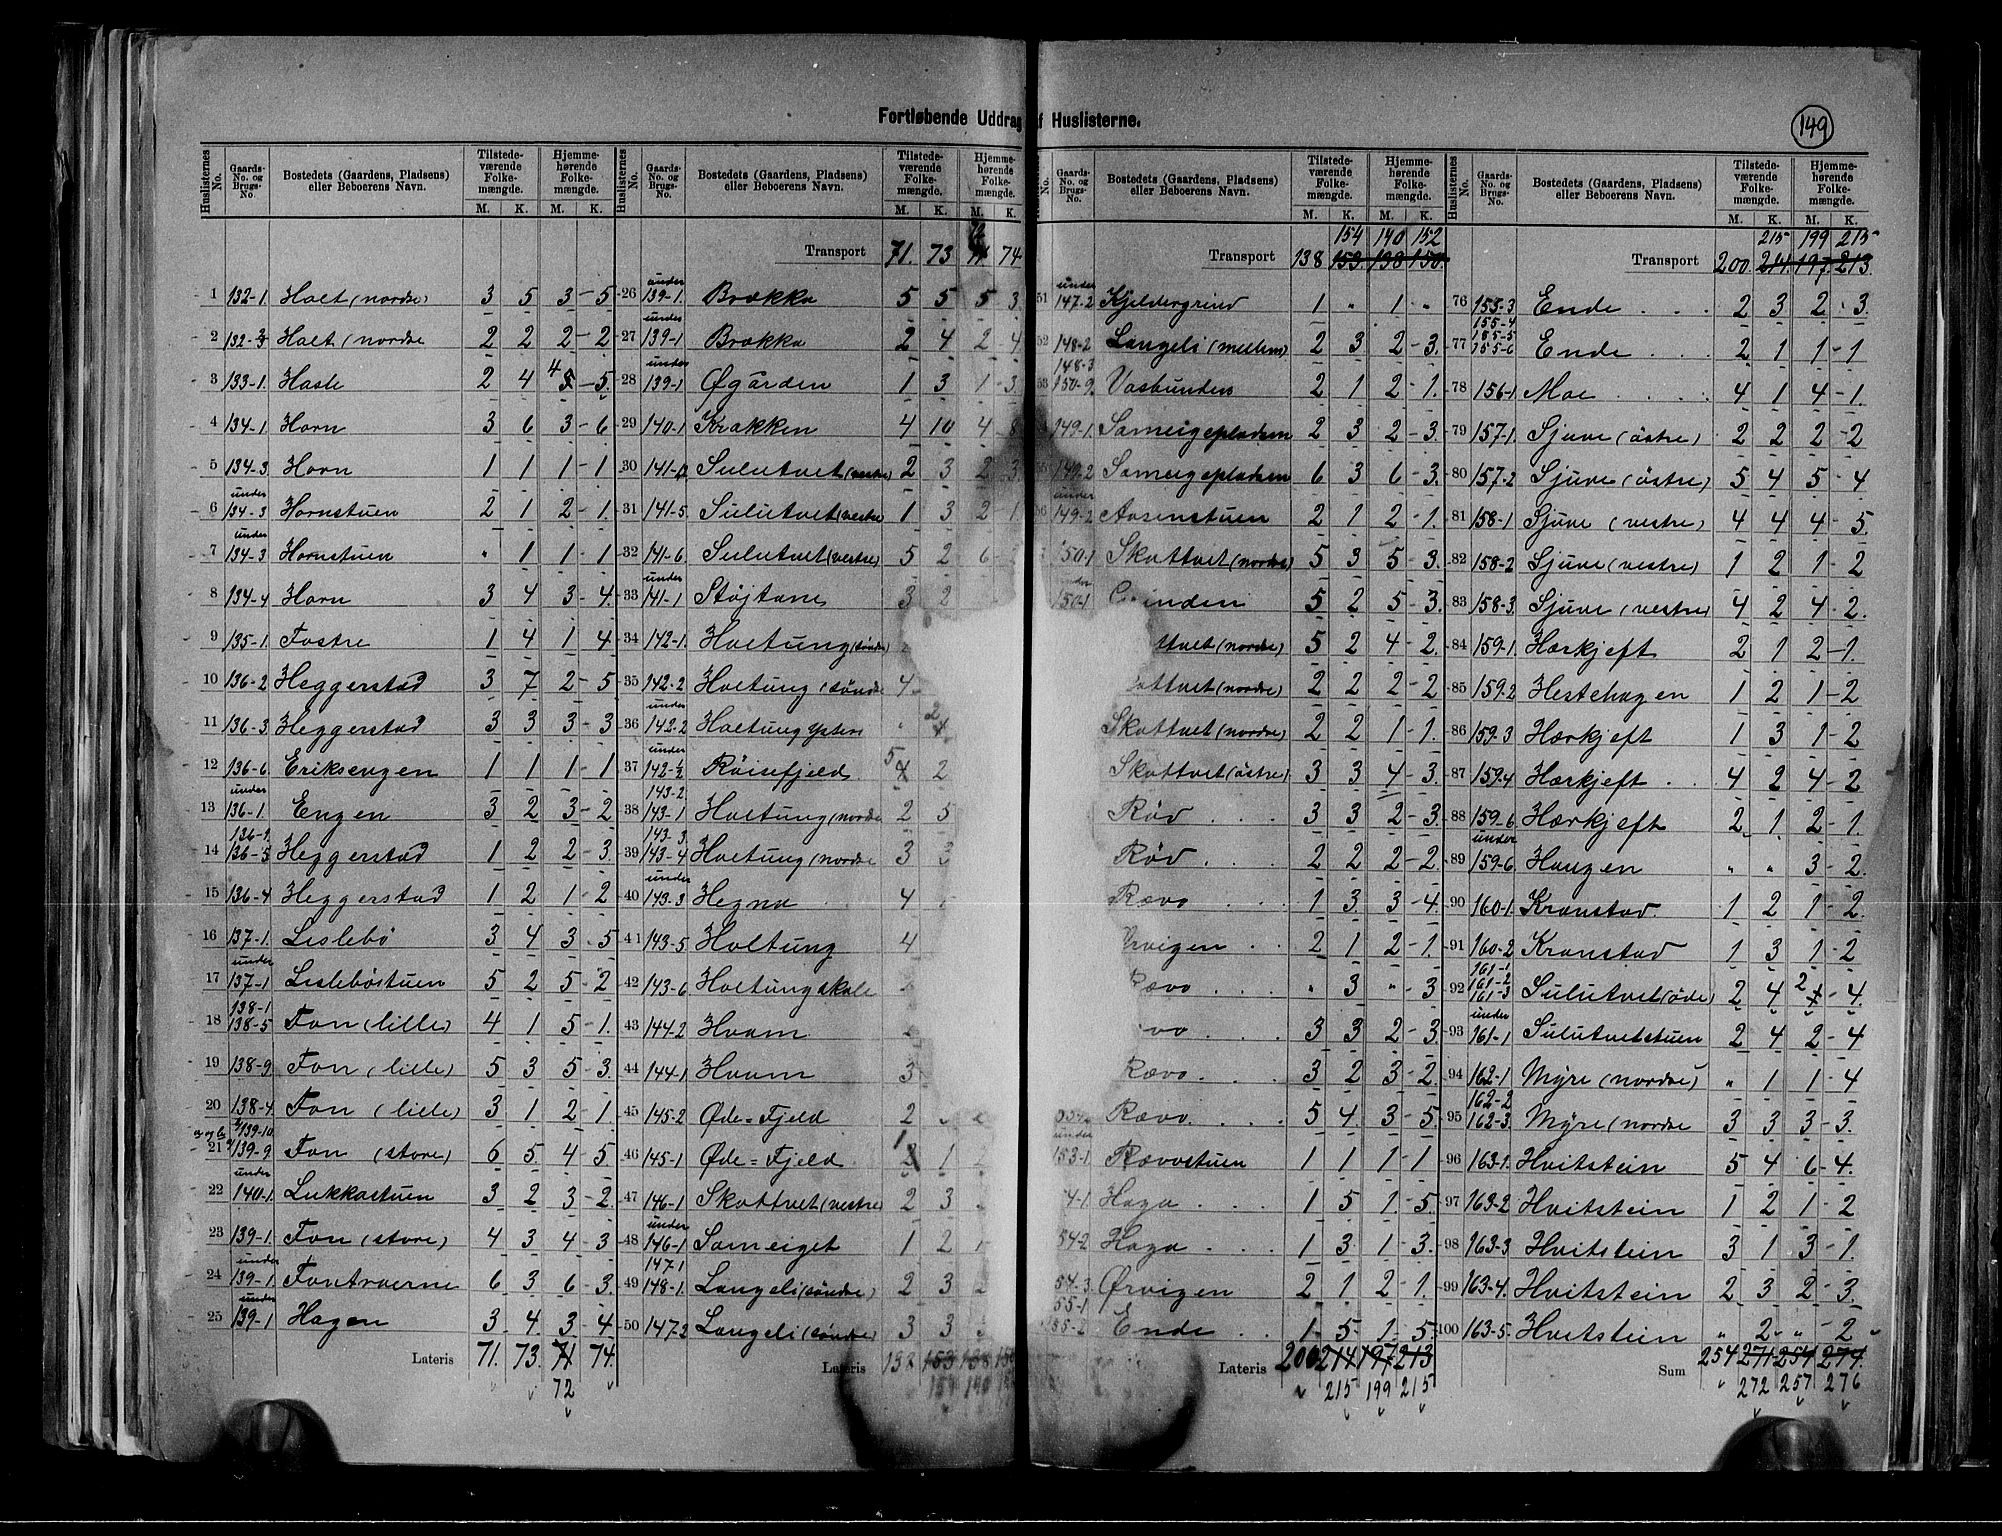 Fortløbende Uddrag af Huslisterne.
149
Huslisternes No. Gaards- No. og Brugs- No. Bostedets (Gaardens, Pladsens) eller Beboerens Navn. Tilstede- værende Folke- mængde. M. K. Hjemme- hørende Folke- mængde. M. K.
1 132-1. Holt (nordre) 3 5 3 - 5
2 132-3 Holt (nordre 2 2 2 - 2
3 133-1. Hasle 2 4 4 - 5
4 134-1. Horn 3 6 3 - 6
5 134-3. Horn 1 1 1 - 1
6 under 134-3 Hornstuen 2 1 2 - 1.
7 under 134-3 Hornstuen " 1 1 - 1
8 134-4 Horn 3 4 3 - 4.
9 135-1. Fostre 1 4 1 4
10 136-2 Heggerstad 3 7 2 - 5
11 136-3. Heggerstad 3 3 3 - 3
12 136-6. Eriksengen 1 1 1 - 1
13 under 136-1. Engen 3 2 3 - 2
14 136-1. 136-5 Heggerstad 1 2 2 - 3.
15 136-4 Heggerstad 1 2 1 - 2
16 137-1. Lislebö 3 4 3 - 5
17 under 137-1 Lisleböstuen 5 2 5 - 2
18 138-1 138-5 Fon (lille) 4 1 5 - 1.
19 138-9 Fon (lille) 5 3 5 - 3.
20 138-4. Fon (lille) 3 1 2 - 1
21 139-10 139-9 Fon (store) 6 5 4 - 5
22 under 140-1. Lukkastuen 3 2 3 - 2
23 139-1. Fon (store) 4 3 4 - 3
24 under 139-1. Fontvoerne 6 3 6 - 3.
25 under 139-1 Hagen 3 4 3 - 4
Lateris 71. 73. 71 74.
72
Huslisternes No. Gaards- No. og Brugs- No. Bostedets (Gaardens, Pladsens) eller Beboerens Navn. Tilstede- værende Folke- mængde. M. K. Hjemme- hørende Folke- mængde. M. K.
Transport 71. 73 74
26 under 139-1. Brækka 5 5 5 3
27 under 139-1 Brækka 2 4 2 - 4
28 under 139-1 Øgården 1 3 1 - 3
29 140-1 Krakken 4 10 4 8
30 Sulutvet (vestre) 2 3 2 3
31 141-5. Sulutvet (vestre 1 3 2 - 1
32 141-6 Sulutvet (vestre) 5 2 6
33 under 141-1 Støjtane 3 2
34 142-1. Holtung (søndre)
35 142-2 Holtung (søndre 4
36 under 142-2 Holtung ystero " 2
37 under 142-1/2 Røisefjeld 5 2
38 143-2 143-1 Holtung (nordre 2 5
39 143-3 143-4 Holtung (nordre 3
40 under 143-3 Hegna 4
41 143-5 Holtung 4
42 143-6. Holtung skole
43 144-2 Hvam
44 144-1 Hvam 3
45 145-2 Øde=Fjeld 2
46 145-1 Øde=Fjeld 1
47 146-1 Skottvet (vestre) 2 3
48 under 146-1 Sameiget 1 2
49 147-1 148-1. Langeli (søndre) 2 3 2
50 147-2 Langeli (søndre) 3 3 3
Lateris 138. 153 138 150
154 140
No. Gaards- No. og Brugs- No. Bostedets (Gaardens, Pladsens) eller Beboerens Navn. Tilstede- værende Folke- mængde. M. K. Hjemme- hørende Folke- mængde. M. K.
154 140 152
Transport 138 153 138 150.
51 under 147-2 Kjeldergrind 1 " 1 - "
52 148-2 Langeli (mellem) 2 3 2 - 3.
53 148-3 150-9. Vasbunden 2 1 2 - 1.
149-1. Sameigepladsen 2 3 2 - 3.
149-2 Sameigepladsen 6 3 6 - 3
under 149-2 Aasenstuen 2 1 2 - 1.
150-1 Skottvet (nordre) 5 3 5 - 3.
under 150-1 Grinden 5 2 5 - 3.
(nordre) 5 2 4 - 2.
(nordre) 2 2 2 - 2
Skottvet (nordre) 2 2 1 - 1.
Skottvet (östre) 3 3 4 - 3.
Røv 3 3 2 - 3.
Røv 2 2 2 - 2
Rævo 1 3. 3 - 4.
2 1 2 - 1.
Rævo " 3 " - 3
3 3 2 - 3
Rævo 3 2 3 - 2
Rævo 5 4 3 - 5
under 153-1 Rævostuen 1 1 1 - 1
Haga 1 5 1 - 5
54-2 Haga 1 3 1 - 3.
54-3 Ørvigen 2 1 2 - 1.
55-1 Ende 1 - 5 - 1 - 5.
Lateris 200 214 197 213
215 199 215
Huslisternes No. Gaards- No. og Brugs- No. Bostedets (Gaardens, Pladsens) eller Beboerens Navn. Tilstede- værende Folke- mængde. M. K. Hjemme- hørende Folke- mængde. M. K.
215 199 215
Transport 200. 214. 197. 213.
76 155-3 Ende 2 3 2 - 3.
77 155-4 155-5 155-6 Ende 2 1 1 - 1
78 156-1 Moe 4 1 4 - 1.
79 157-1. Sjuve (östre) 2 2 2 - 2
80 157-2 Sjuve (östre) 5 4 5 - 4
81 158-1 Sjuve (vestre) 4 4 4 - 5
82 158-2 Sjuve (vestre) 1 2 1 - 2
83 158-3. Sjuve (vestre) 4 2 4 - 2.
84 159-1. Hærkjeft 2 1 2 - 1.
85 159-2 Hestehagen 1 2 1 - 2
86 159-3 Hærkjeft 1 3 1 - 2
87 159-4 Hærkjeft 4 2 4 - 2
88 159-6 Hærkjeft 2 1 2 - 1.
89 under 159-6. Haugen " " 3 - 2.
90 160-1. Kranstad. 1 2 1 - 2.
91 160-2 Kranstad 1 3 1 - 2
92 161-1 161-2 161-3 Sulutvet (øde) 2 4 2 - 4.
93 under 161-1 Sulutvetstuen 2 4 2 - 4
94 162-1 Myre (nordre) " 1 1 - 4
95 162-2 162-3. Myre (nordre 3 3 3 - 3.
96 163-1. Hvitstein 5 4 6 - 4.
97 163-2 Hvitstein 1 2 1 - 2
98 163-3 Hvitstein 3 1 3 - 1.
99 163-4. Hvitstein 2 3 2 - 3.
100 163-5. Hvitstein " 2 - " - 2
Sum 254 271 254 274.
272 257 276